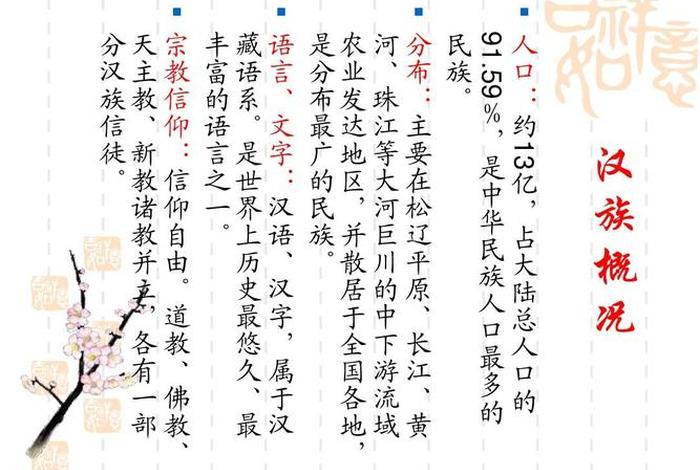 汉族概况
人口：约13亿，占大陆总人口的
91.59%，是中华民族人口最多的
民族。
分布：主要在松辽平原、长江、黄
河、珠江等大河巨川的中下游流域
农业发达地区，并散居于全国各地，
是分布最广的民族。
语言、文字：汉语、汉字，属于汉
藏语系。是世界上历史最悠久、最
丰富的语言之一。
宗教信仰：信仰自由。道教、佛教、
天主教、新教诸教并立，各有一部
分汉族信徒。
吉祥如意